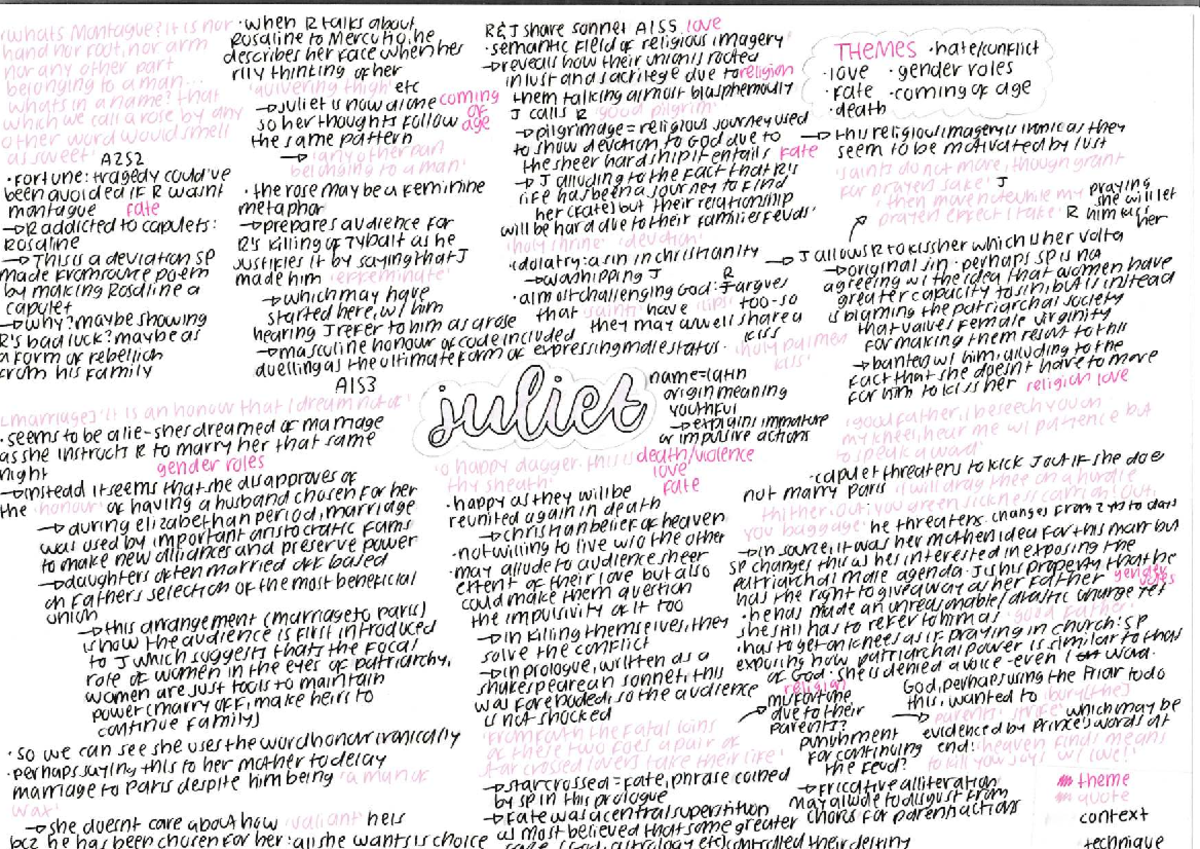 'whats Montague? it is nor
hand nor foot, nor arm
nor any other part
belonging to a man...
whats in a name? that
which we call a rose by any
other word would smell
as sweet'
A2S2
·fortune: tragedy could've
been avoided if R wasnt
montague fate
→R addicted to capulets:
Rosaline
→This is a deviation SP
made from source poem
by making Rosaline a
capulet
→why? maybe showing
R's bad luck? maybe as
a form of rebellion
from his family
·when R talks about
Rosaline to Mercutio, he
describes her face when hes
rlly thinking of her
'quivering thigh' etc
→Juliet is now alone coming of age
so her thoughts follow
the same pattern
→'any other part
belonging to a man'
·the rose may be a feminine
metaphor
→prepares audience for
R's killing of Tybalt as he
justifies it by saying that J
made him 'effeminate'
→which may have
started here, w/ him
hearing J refer to him as a rose
→masculine honour of code included
duelling as the ultimate form of expressing male status.
R & J share sonnet A1S5 love
·semantic field of religious imagery
→reveals how their union is rooted
in lust and sacrilege due to religion
them talking almost blasphemously
J calls R 'good pilgrim'
→pilgrimage = religious journey used
to show devotion to God due to
the sheer hardship it entails fate
→J alluding to the fact that R's
life has been a journey to find
her (fate) but their relationship
will be hard due to their families feuds'
'holy shrine' 'devotion'
idolatry: a sin in christianity
→worshipping J
·almost challenging God: R argues
that 'saints' have 'lips' too - so
they may aswell share a
kiss
'holy palmers
kiss'
THEMES ·hate/conflict
·love ·gender roles
·fate ·coming of age
·death
→this religious imagery is ironic as they
seem to be motivated by lust
'saints do not move, though grant
for prayers sake' J
'then move not while my
prayers effect i take' R
praying
she will let
him kiss
her
→J allows R to kiss her which is her volta
→original sin - perhaps SP is not
agreeing w/ the idea that women have
greater capacity to sin, but is instead
is blaming the patriarchal society
that values female virginity
for making them resort to this
→banter w/ him, alluding to the
fact that she doesn't have to move
for him to kiss her religion love
juliet
name = latin
origin meaning
youthful
→explains immature
or impulsive actions
A1S3
[marriage] 'it is an honour that I dream not of'
·seems to be a lie - shes dreamed of marriage
as she instructs R to marry her that same
night gender roles
→instead it seems that she disapproves of
the 'honour' of having a husband chosen for her
→during elizabethan period, marriage
was used by important aristocratic fams
to make new alliances and preserve power
→daughters often married off based
on fathers selection of the most beneficial
union
→this arrangement (marriage to paris)
is how the audience is first introduced
to J which suggests thats the focal
role of women in the eyes of patriarchy,
women are just tools to maintain
power (marry off, make heirs to
continue family)
·so we can see she uses the word honour ironically
·perhaps saying this to her mother to delay
marriage to Paris despite him being 'a man of
wax'
→she doesnt care about how 'valiant' he is
bcz he has been chosen for her: all she wants is choice
'o happy dagger. this is
thy sheath'
death/violence
love
fate
·happy as they will be
reunited again in death
→christian belief of heaven
·not willing to live w/o the other
·may allude to audience sheer
extent of their love but also
could make them question
the impulsivity of it too
→in killing themselves, they
solve the conflict
→in prologue, written as a
shakespearean sonnet, this
was foreboded, so the audience
is not shocked
'from forth the fatal loins
of these two foes a pair of
star crossed lovers take their life'
→starcrossed = fate, phrase coined
by SP in this prologue
→Fate was a central superstition
as most believed that some greater
force (God, astrology etc) controlled their destiny
'good father, i beseech you on
my knees, hear me w/ patience but
to speak a word'
·capulet threatens to kick J out if she does
not marry Paris 'I will drag thee on a hurdle
thither. Out, you green sickness carrion! Out,
you baggage' he threatens. changes from 2 yrs to days
→in source, it was her mother's idea for this marr but
SP changes this as hes interested in exposing the
patriarchal male agenda. J is his property that he
has the right to giveaway as her father gender roles
·he has made an unreasonable/drastic change yet
she still has to refer to him as 'good father'
·has to get on knees as if praying in church: SP
exposing how patriarchal power is similar to that
of God - she is denied a voice - even 1 word.
religion
misfortune
due to their
parents?
punishment
for continuing
the feud?
God, perhaps using the Friar to do
this, wanted to 'bury [the]
parents' strife' which may be
evidenced by Prince's words at
end: 'heaven finds means
to kill your joys w/ love!'
→fricative alliteration
may allude to disgust from
chorus for parents actions
theme
quote
context
technique